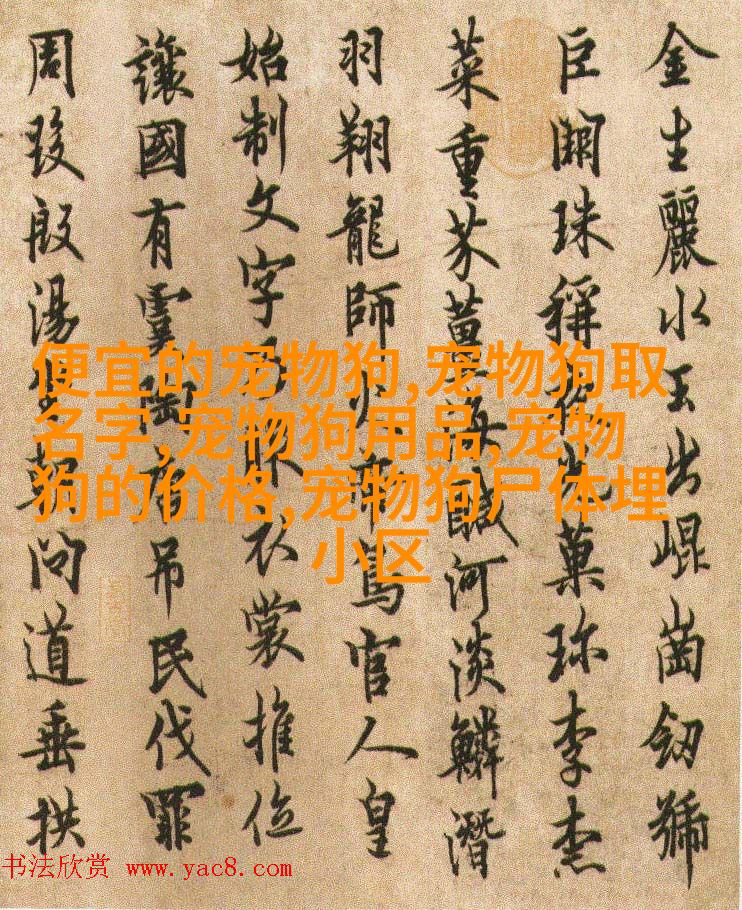 金生麗水玉出崐崗劒號
巨闕珠稱光菓珎李柰
菜重芥薑海鹹河淡鱗潛
羽翔龍師帝鳥官人皇
始制文字服衣裳推位
讓國有虞陶吊民伐罪
周發殷湯問道垂拱
便宜的宠物狗,宠物狗取
名字,宠物狗用品,宠物
狗的价格,宠物狗尸体埋
小区
书法欣赏 www.yac8.com